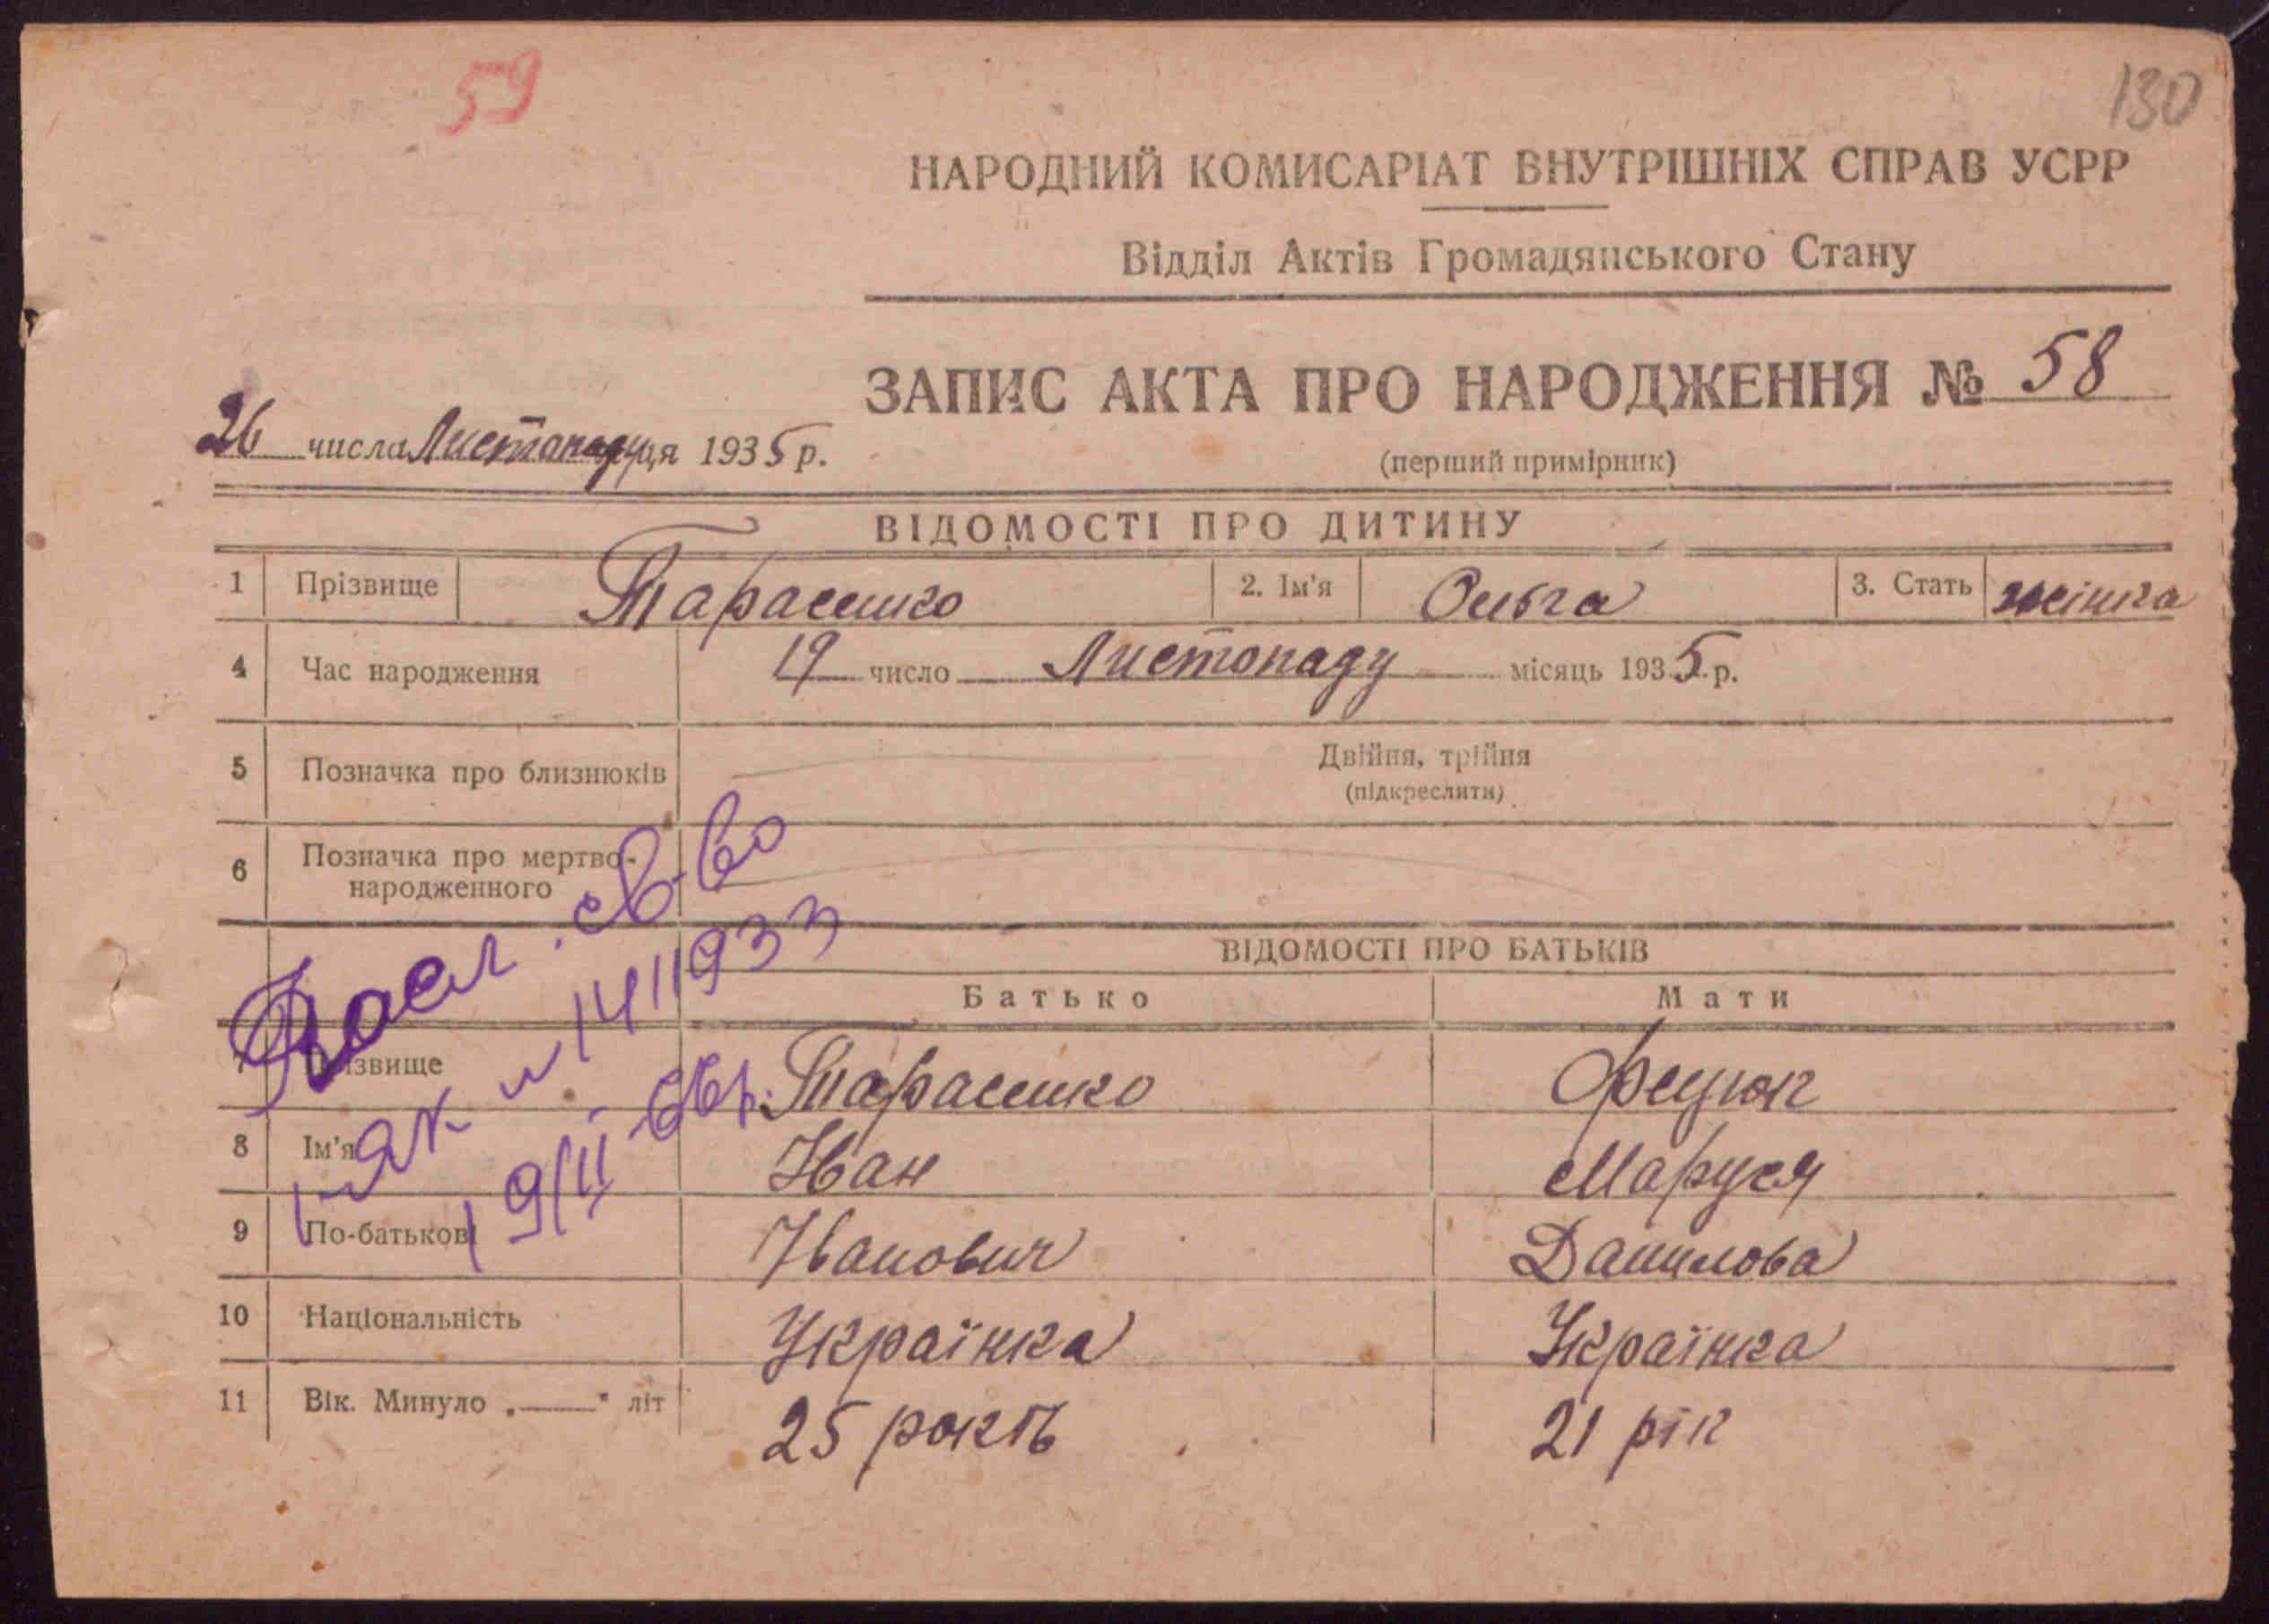 59
130
НАРОДНИЙ КОМИСАРІАТ ВНУТРІШНІХ СПРАВ УСРР
Відділ Актів Громадянського Стану
ЗАПИС АКТА ПРО НАРОДЖЕННЯ № 58
26 числа Листопаду ця 1935 р.
(перший примірник)
ВІДОМОСТІ ПРО ДИТИНУ
1 Прізвище Тарасенко 2. Ім'я Ольга 3. Стать жінка
4 Час народження 19 число Листопаду місяць 1935 р.
5 Позначка про близнюків Двійня, трійня
(підкреслити)
6 Позначка про мертво-
народженного
ВІДОМОСТІ ПРО БАТЬКІВ
Батько Мати
7 Прізвище Тарасенко Фецюк
8 Ім'я Іван Маруся
9 По-батькові Іванович Данилова
10 Національність Українка Українка
11 Вік. Минуло „——" літ 25 років 21 рік
св-во
1-ЯК № 1411933
19/II-66р.